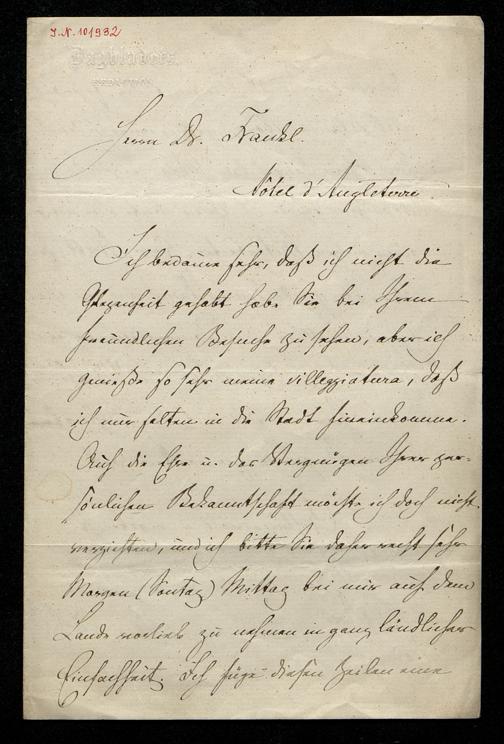 J.N. 101932
Dagbladets
REDACTION
Herrn Dr. Frankl.
Hôtel d'Angleterre.
Ich bedaure sehr, daß ich nicht die
Gelegenheit gehabt habe Sie bei Ihrem
freundlichen Besuche zu sehen, aber ich
genieße so sehr meine villeggiatura, daß
ich nur selten in die Stadt hineinkomme.
Auf die Ehre u. das Vergnügen Ihrer per-
sönlichen Bekanntschaft möchte ich doch nicht
verzichten, und ich bitte Sie daher recht sehr
Morgen (Sontag) Mittag bei mir auf dem
Lande vorlieb zu nehmen in ganz ländlicher
Einfachheit. Ich füge diesen Zeilen eine